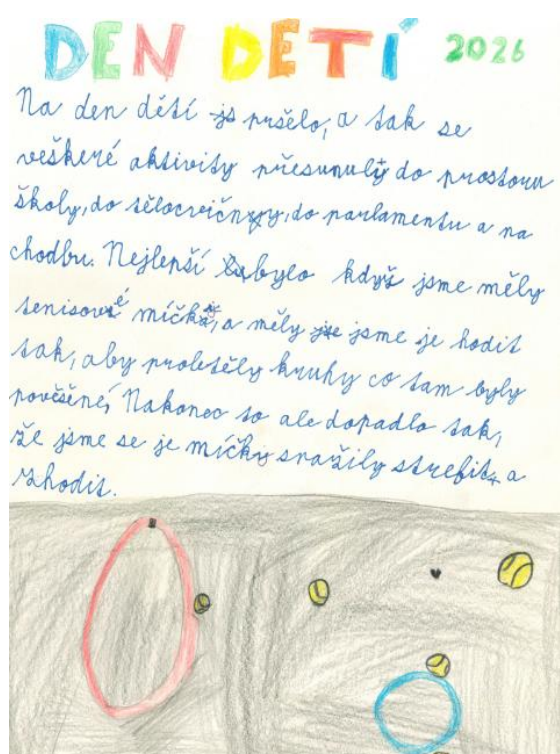 DEN DETÍ 2026
Na den dětí pršelo, a tak se
veškeré aktivity přesunuly do prostoru
školy, do tělocvičny, do parlamentu a na
chodbu. Nejlepší bylo když jsme měly
tenisové míčky, a měly jsme je hodit
tak, aby proletěly kruhy co tam byly
pověšené, Nakonec to ale dopadlo tak,
že jsme se je míčky snažily strefit, a
shodit.